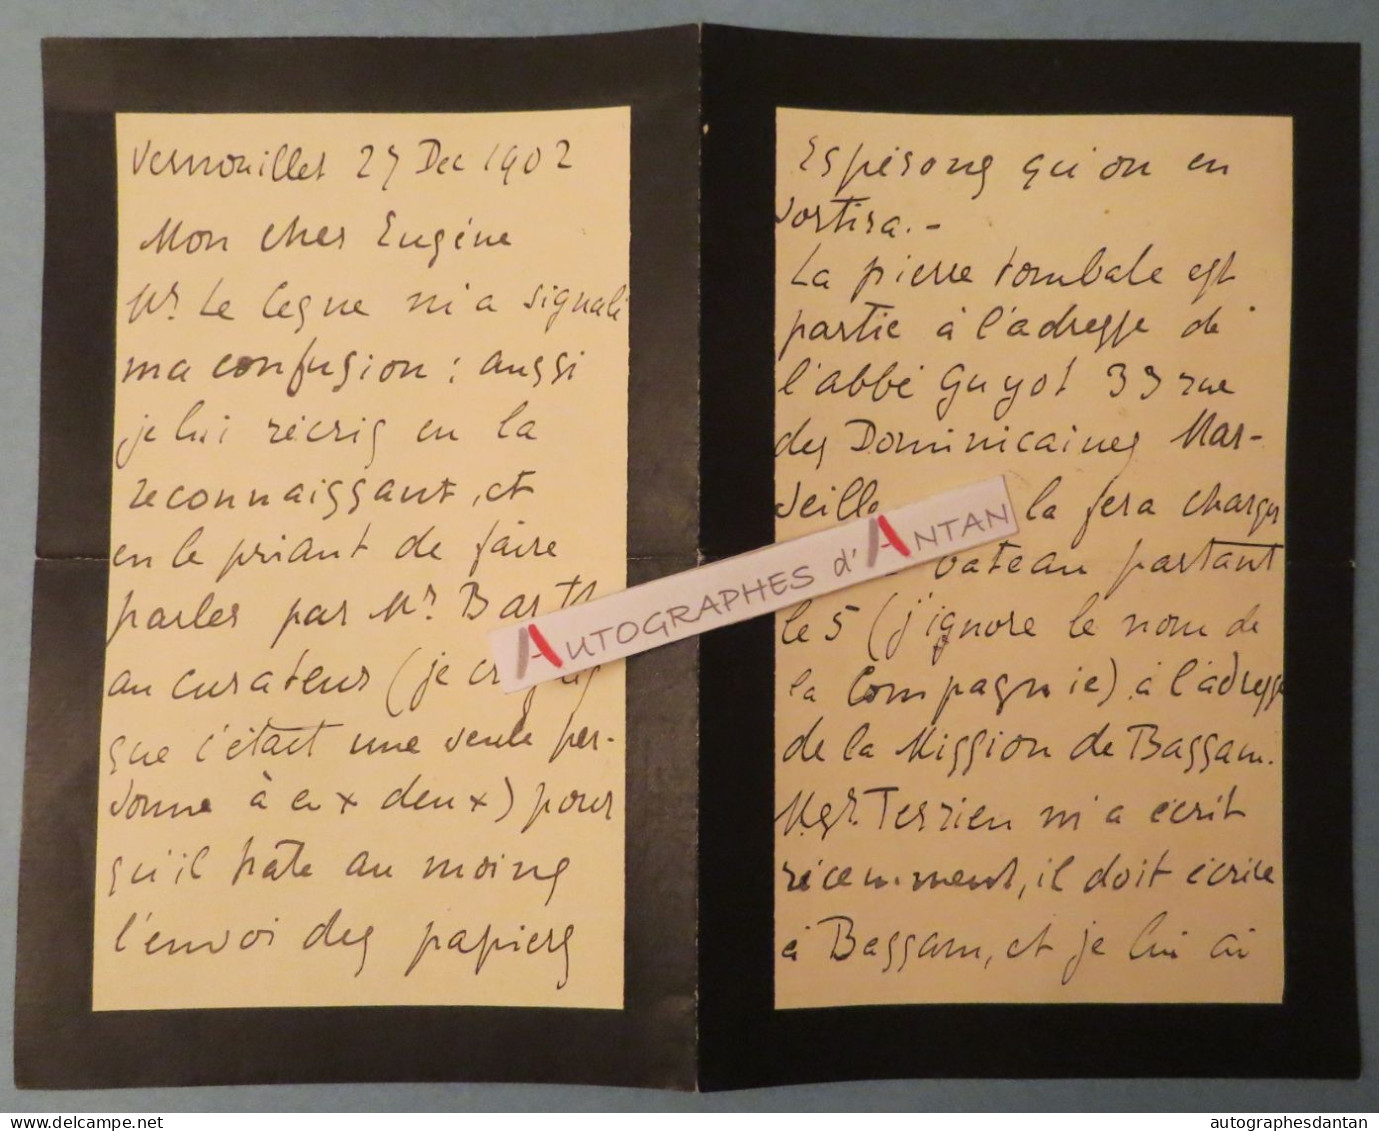 Vernouillet 27 Dec 1902
Mon cher Eugéne
Mr. Le Cesne m'a signalé
ma confusion : aussi
je lui récris en la
reconnaissant, et
en le priant de faire
parler par Mr. Barth
au curateur (je croyais
que c'était une seule per-
sonne à eux deux) pour
qu'il hâte au moins
l'envoi des papiers
Espérons qu'on en
sortira. -
La pierre tombale est
partie à l'adresse de
l'abbé Guyot 33 rue
des Dominicaines Mar-
seille la fera charger
bateau partant
le 5 (j'ignore le nom de
la Compagnie) à l'adresse
de la Mission de Bassam.
Mgr. Terrien m'a écrit
récemment, il doit écrire
à Bassam, et je lui ai
AUTOGRAPHES d'ANTAN
autographesdantan
delcampe.net